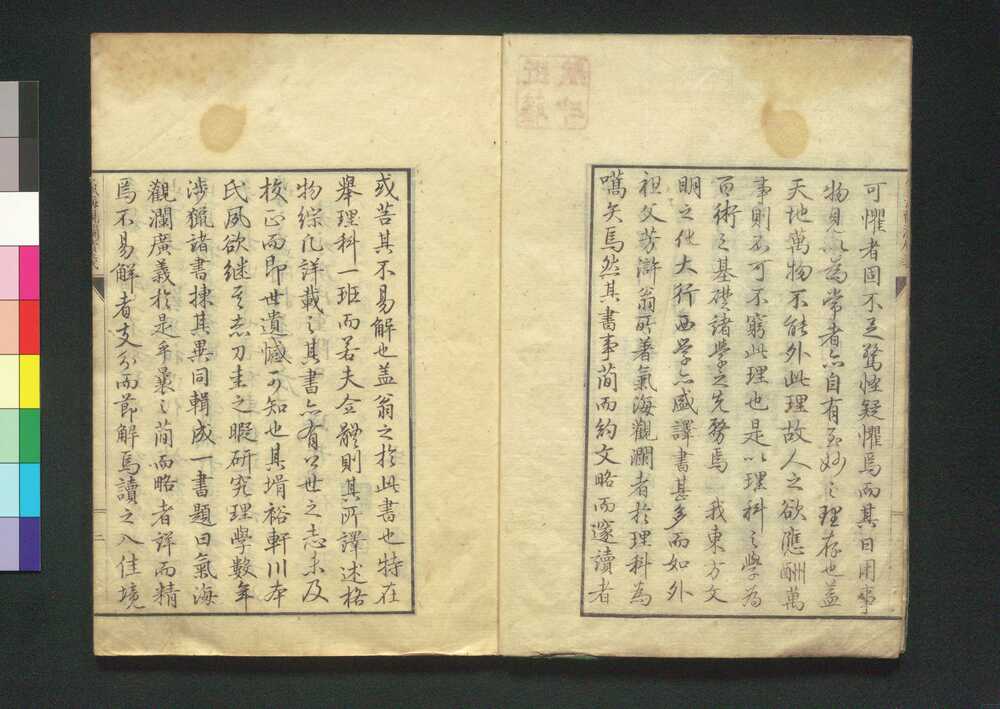 可懼者固不足驚怪疑懼焉而其日用事
物見以為常者亦自有至妙之理存也蓋
天地萬物不能外此理故人之欲應酬萬
事則不可不窮此理也是以理科之學為
百術之基礎諸學之先務焉我東方文
明之化大行西學亦盛譯書甚多而如外
祖父芳滸翁所著氣海觀瀾者於理科為
嚆矢焉然其書事簡而約文略而邃讀者
或苦其不易解也蓋翁之於此書也特在
舉理科一班而若夫全體則其所譯述格
物綜凡詳載之其書亦有公世之志未及
校正而即世遺憾可知也其壻裕軒川本
氏夙欲繼其志刀圭之暇研究理學數年
涉獵諸書揀其異同輯成一書題曰氣海
觀瀾廣義於是乎曩之簡而略者詳而精
焉不易解者支分而節解焉讀之入佳境
二